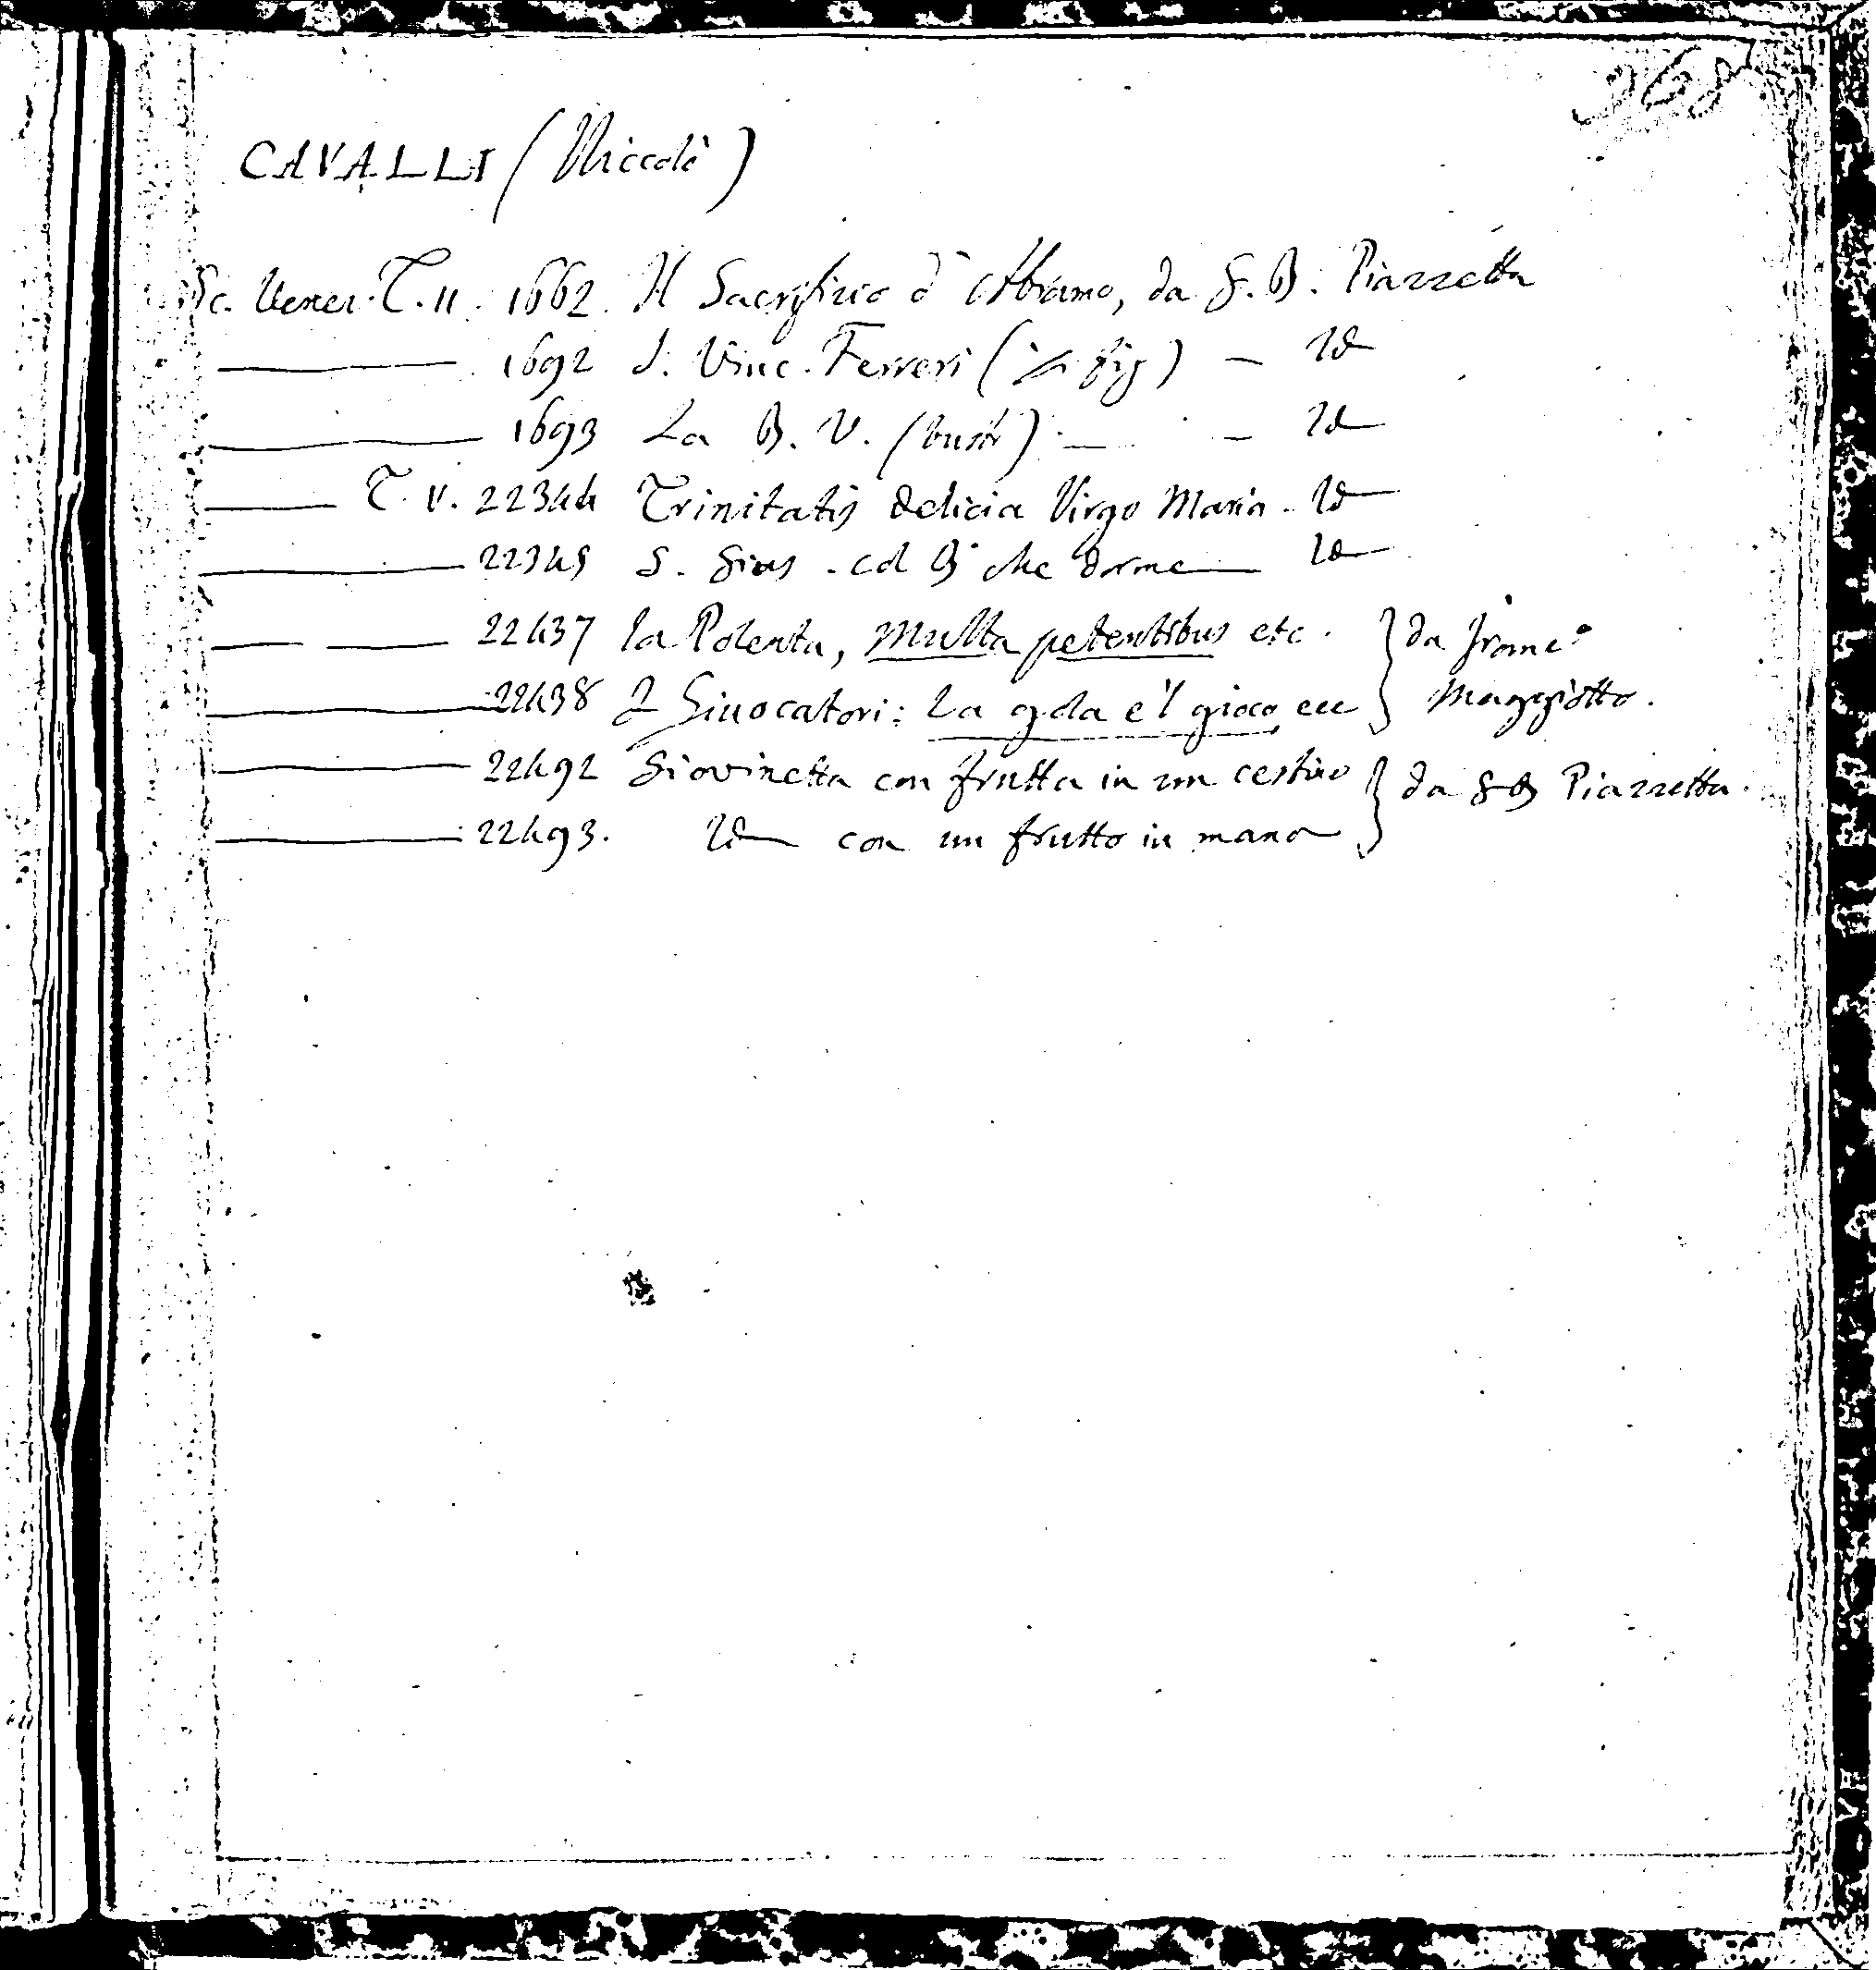 CAVALLI (Niccolò)
Sc. Venez. T. II. 1662. Il Sacrifizio d'Abramo, da G. B. Piazzetta
1692 S. Vinc. Ferreri (½ fig) — Id
1693 La B. V. (busto) — — Id
T. V. 22344 Trinitatis delicia Virgo Maria. Id
22345 S. Gius. col B. che dorme — Id
22437 la Polenta, Multa petentibus etc. } da Franc.º
22438 I Giuocatori: La gola e'l gioco ecc } Maggiotto.
22492 Giovinetta con frutta in un cestino } da GB Piazzetta.
22493. Id con un frutto in mano }